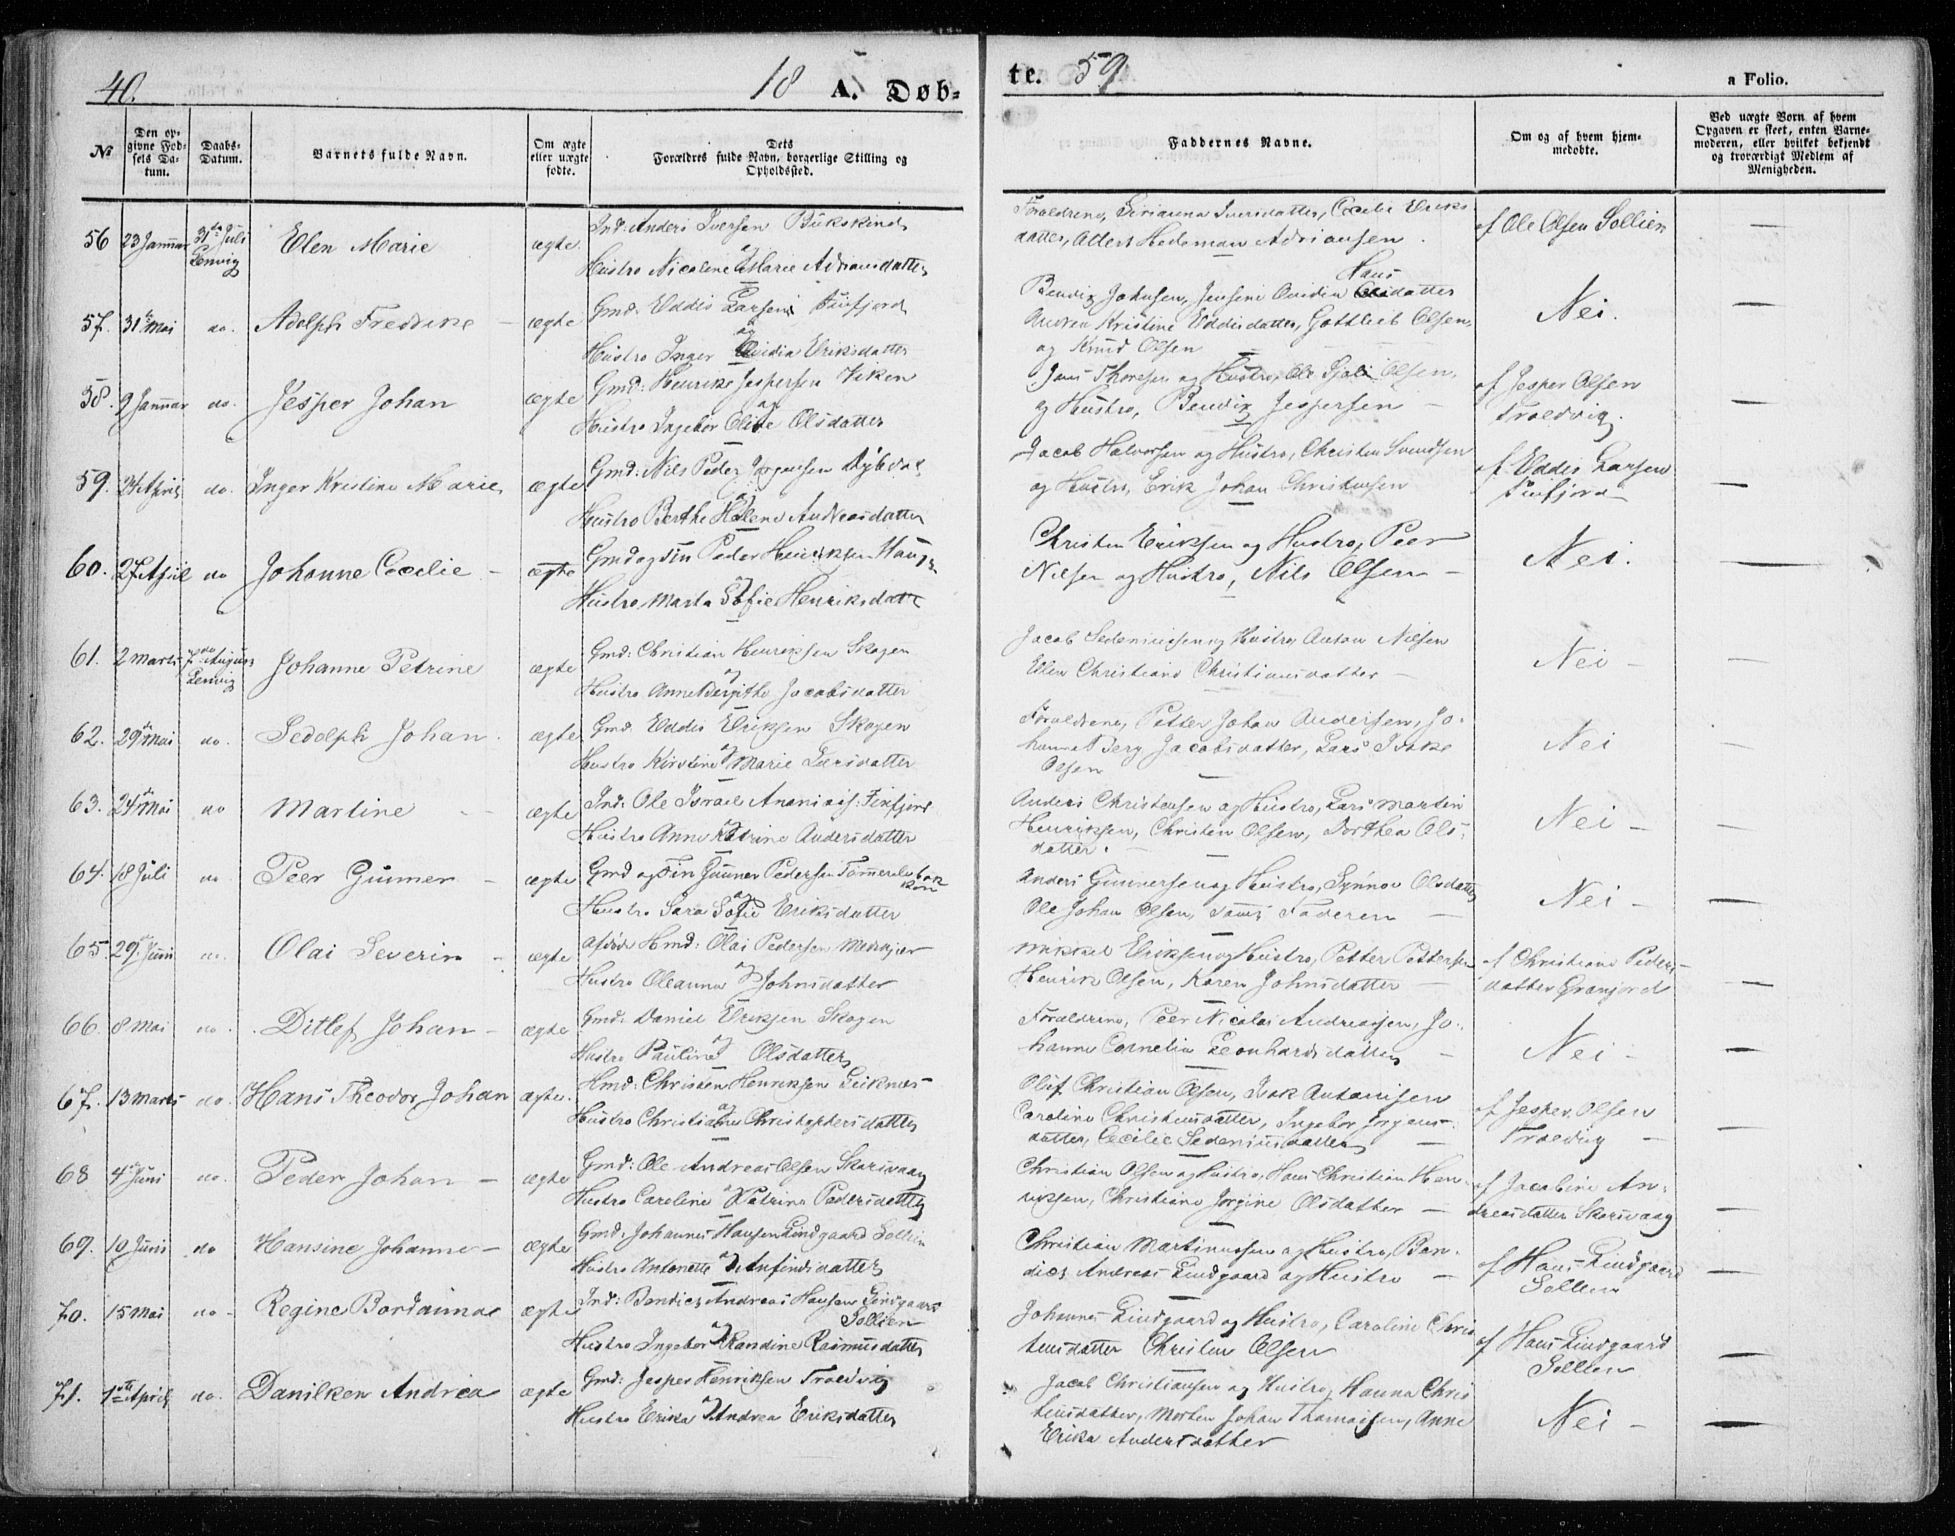 40. 18 A. Døb- te. 59 a Folio.
№ Den op-givne Fød-sels Da-tum. Daabs-Datum. Barnets fulde Navn. Om ægte eller uægte fødte. Dets Forældres fulde Navn, borgerlige Stilling og Opholdssted. Faddernes Navne. Om og af hvem hjem-medøbte. Ved uægte Børn af hvem Opgaven er skeet, enten Barne-moderen, eller hvilket bekjendt og troværdigt Medlem af Menigheden.
56 23 Januar 31 Juli Lenvig Elen Marie ægte Ind: Anders Iversen Bukskind
og
Hustro Nicoline Marie Adriansdatter
Forældrene, Iversdatter, Cecilie Eriks
datter, Hedeman Adriansen.
af Ole Olsen Sollien —
57. 31 Mai do. Adolph Fredrike — ægte Gmd: Eddis Larsen Finfjord
og
Hustro Inger Ovidia Eriksdatter
Bendix Johnsen, Jensine Ovidia Hans datter
Andrea Kristine Eddisdatter, Gottlieb Olsen,
og Knud Olsen
Nei. —
58. 9 Januar do. Jesper Johan ægte Gmd: Henrik Jespersen Viken
og
Hustro Ingebor Olsdatter
Jens Thoresen og Hustro, Ole Olsen,
og Hustro, Bendix Jespersen —
af Jesper Olsen
Troldvig. —
59. 24 April do. Inger Kristine Marie ægte Gmd: Nils Peder Jørgensen
og
Hustro Berthe Helene Andreasdatter
Jacob Halvorsen og Hustro, Christen Svendsen
og Hustro, Erik Johan Christensen
af Eddis Larsen
Finfjord —
60. 27 April do Johanne Cecilie — ægte Gmd og Fin Peder Henriksen
og
Hustro Marta Sofie Henriksdatter
Christen Eriksen og Hustro, Peer
Nilsen og Hustro, Nils Olsen —
Nei. —
61. 2 Marts 7 August Lenvig Johanne Petrine ægte Gmd: Christian Henriksen Skogen
og
Hustro Anne Bergithe Jacobsdatter
Jacob Sedeniussen og Hustro, Anton Nilsen
Ellen Christiane Christiansdatter —
Nei — —
62. 29 Mai do. Sedolph Johan. ægte Gmd. Eddis Eriksen Skogen
og
Hustro Kirstine Marie Larsdatter
Forældrene, Petter Johan Andersen, Jo-
hanna Berg Jacobsdatter, Lars
Olsen
Nei —
63. 24 Mai do Martine ægte Ind: Ole Israel Ananias: Finfjord
og
Hustro Anne Katrine Andersdatter
Anders Christensen og Hustro, Lars Martin
Henriksen, Christen Olsen, Dorthea Ols-
datter.
Nei — —
64. 18 Juli do Peer Gunner — ægte Gmd og Fin Gunner Pedersen
og
Hustro Sara Sofie Eriksdatter
Anders Gunnersen og Hustro, Synnøv Olsdatter
Ole Johan Olsen, samt Faderen —
Nei — —
65. 29 Juni do. Olai Severin — ægte afdøde Hmd: Olai Pedersen
og
Hustro Oleanna Johnsdatter
Mikkel Eriksen og Hustro, Petter Pettersen
Henrik Olsen, Karen Johnsdatter —
af Christiane Peders-
datter Granjord —
66. 8 Mai do. Ditlef Johan — ægte Gmd: Daniel Eriksen Skogen
og
Hustro Pauline Olsdatter
Forældrene, Peer Nicolai Andreasen, Jo-
hanne Cornelia Leonhardsdatter —
Nei — —
67. 13 Marts do. Hans Theodor Johan ægte. Hmd: Christen Henriksen Leiknes
og
Hustro Christiane Christophersdatter
Oluf Christian Olsen, Isak Antonisen
Caroline Christensdatter, Ingebor Jørgens-
datter, Cecilie Sedeniusdatter —
af Jesper Olsen
Troldvig — —
68 4 Juni do. Peder Johan — ægte Gmd: Ole Andreas Olsen Skorsvaag
og
Hustro Caroline Petrine Pedersdatter
Christian Olsen og Hustro, Hans Christian Hen-
riksen, Christiane Jørgine Olsdatter —
af Jacobine An-
dreasdatter Skorsvaag —
69. 10 Juni do Hansine Johanne — ægte Gmd: Johannes Hansen Lindgaard Sollien
og
Hustro Antonette Anfindsdatter
Christian Martinussen og Hustro, Ben-
dics Andreas Lindgaard og Hustro —
af Hans Lindgaard
Sollien —
70. 15 Mai do — Regine Bordainae ægte Ind: Bendics Andreas Hansen Lindgaard
Sollien
og
Hustro Ingebor Randine Rasmusdatter
Johannes Lindgaard og Hustro, Caroline Chris
tensdatter Christen Olsen
af Hans Lindgaard
Sollien —
71. 1 April do. Daniken Andrea ægte Gmd: Jesper Henriksen Troldvig
og
Hustro Erika Andrea Eriksdatter
Jacob Christiansen og Hustro, Hanna Chris
tensdatter, Morten Johan Thomassen, Anne
Erika Andersdatter
Nei — —